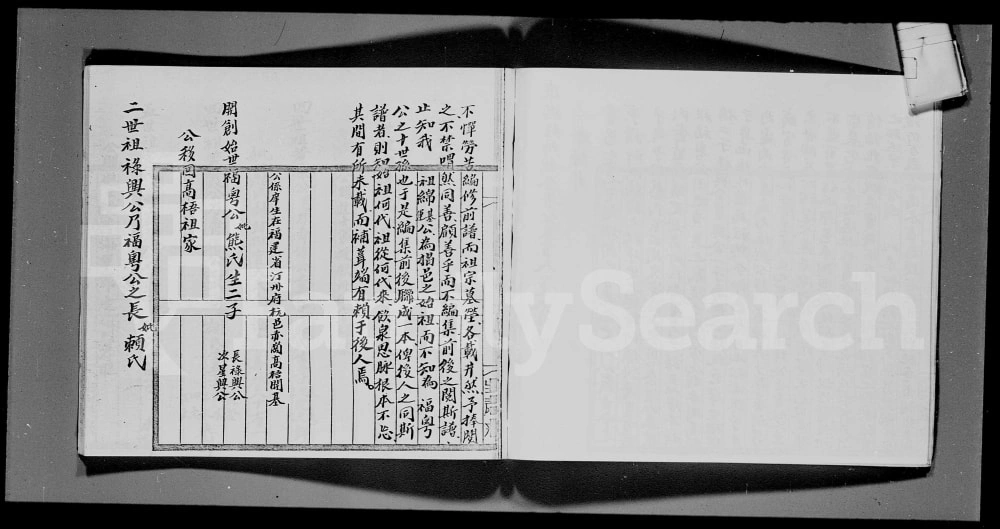 不憚勞苦編修前譜而祖宗墓瑩各載井然予捧閱
之不禁喟然同善顧善乎而不編集前後之閱斯譜
止知我 祖綿基公為揭邑之始祖而不知為 福粵
公之十世孫也于是編集前後聯成一本俾後人之同斯
譜者則知始祖何代祖從何代來飲泉思脉根本不忘
其間有所未載而補葺編有賴于後人焉
公係庠生在福建省汀州府杭邑赤蘭高梧開基
開創始世福粵公妣熊氏生二子 長祿興公
次星興公
公移回高梧祖家
二世祖祿興公乃福粵公之長妣賴氏
FamilySearch